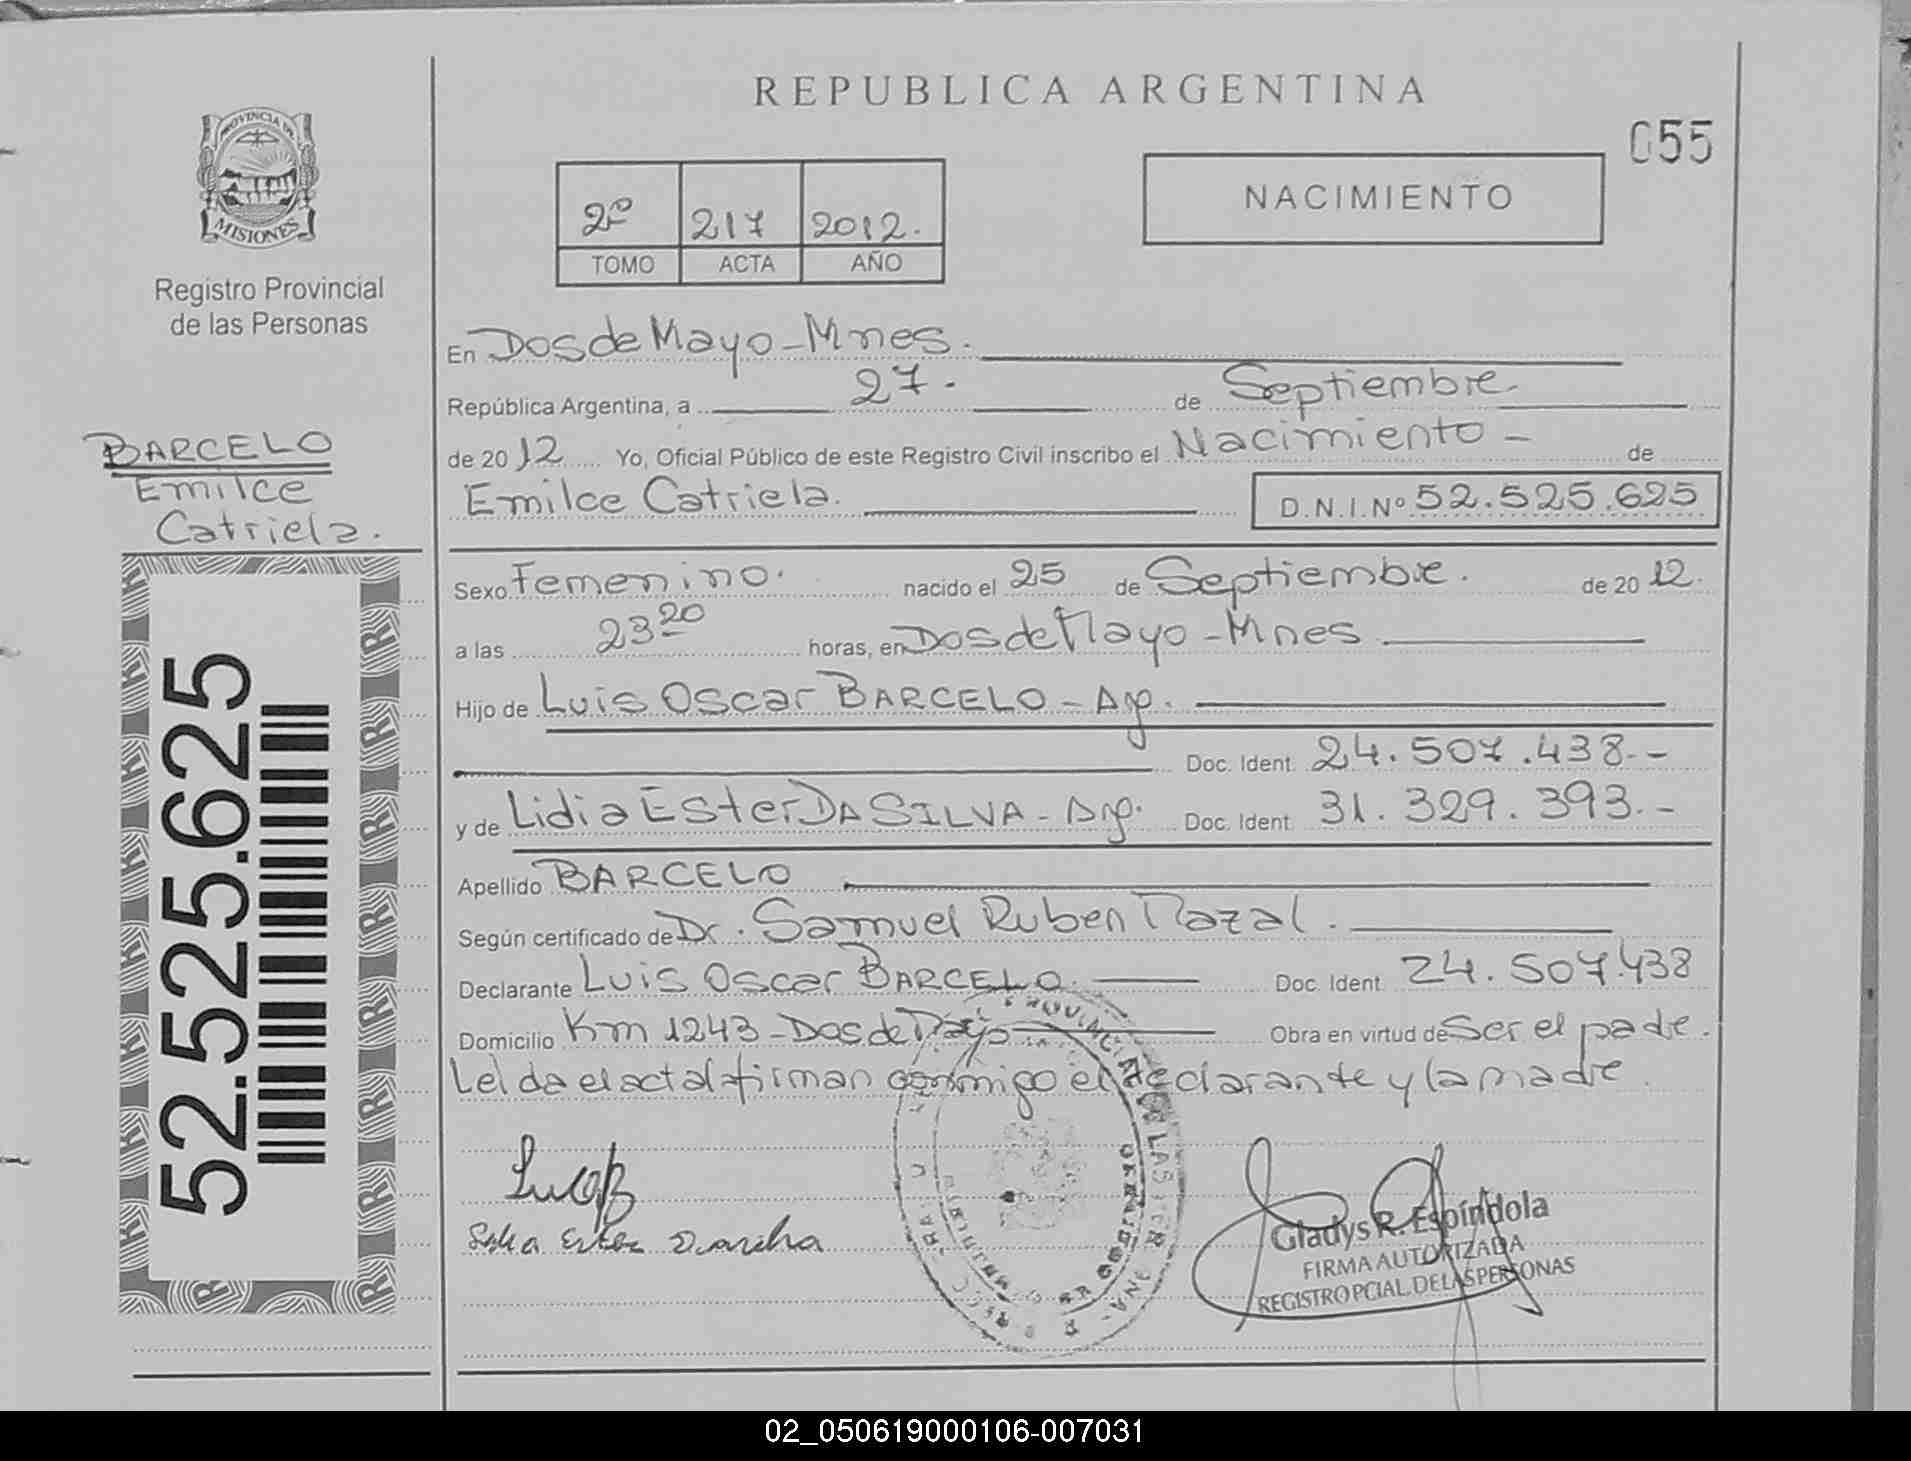 REPUBLICA ARGENTINA
055
PROVINCIA DE
MISIONES
Registro Provincial
de las Personas
2º 217 2012.
TOMO ACTA AÑO
NACIMIENTO
En Dos de Mayo - Mnes.
República Argentina, a 27. de Septiembre.
de 2012 Yo, Oficial Público de este Registro Civil inscribo el Nacimiento - de
Emilce Catriela. D.N.I.Nº 52.525.625
BARCELO
Emilce
Catriela.
52.525.625
Sexo Femenino. nacido el 25 de Septiembre. de 2012.
a las 23 20 horas, en Dos de Mayo - Mnes
Hijo de Luis Oscar BARCELO - Arg.
Doc. Ident. 24.507.438.-
y de Lidia Ester DA SILVA - Arg. Doc. Ident. 31.329.393.-
Apellido BARCELO
Según certificado de Dr. Samuel Ruben Mazal.
Declarante Luis Oscar BARCELO. Doc. Ident. 24.507.438
Domicilio Km 1243 - Dos de Mayo Obra en virtud de Ser el padre.
Leida el acta la firman conmigo el declarante y la madre.
Gladys R. Espíndola
FIRMA AUTORIZADA
REGISTRO PCIAL. DE LAS PERSONAS
02_050619000106-007031